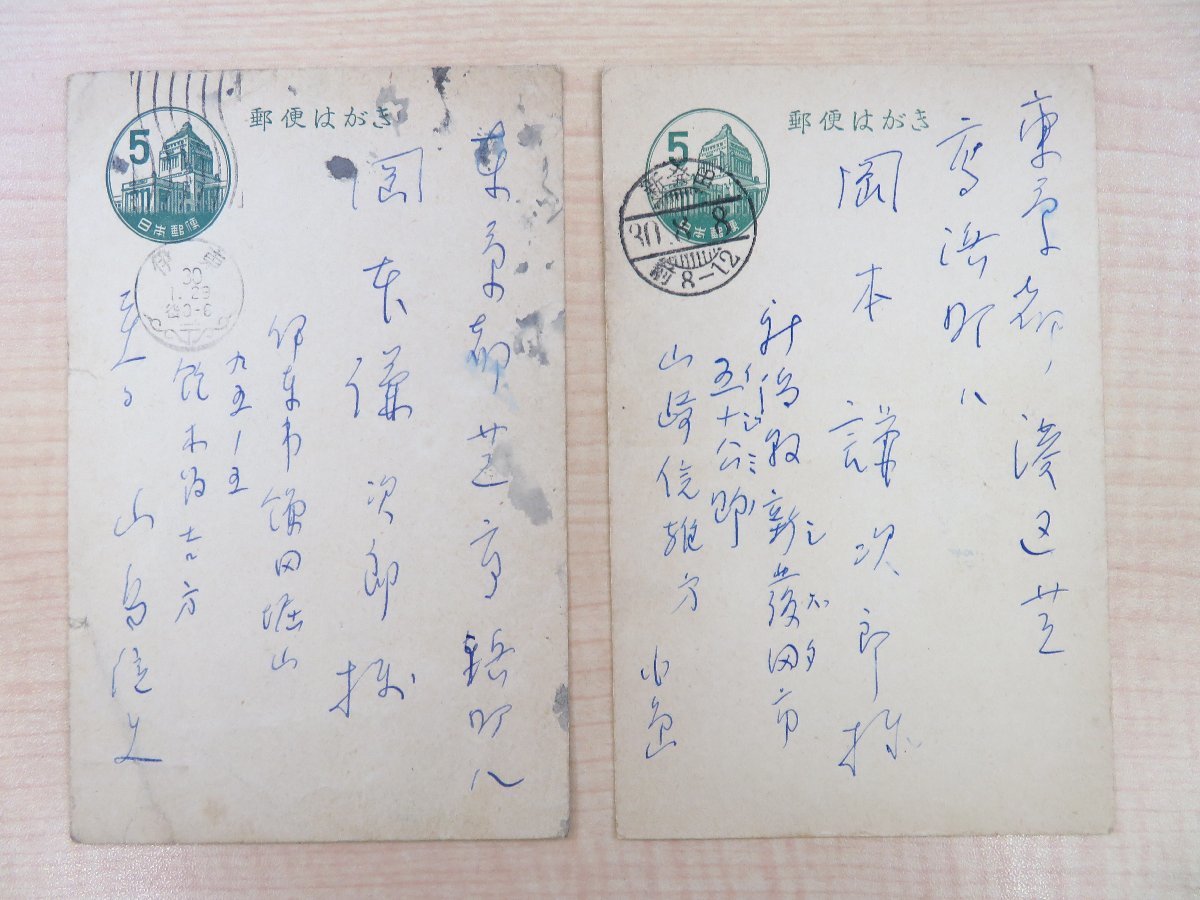 郵便はがき
5
日本郵便
伊東
30
1.29
後0-6
東京都芝高浜町八
岡本謙次郎様
伊東市鎌田堀山
九五一五
鈴木
方
小島信夫
郵便はがき
5
日本郵便
新発田
30. 8
前8-12
東京都、港区芝
高浜町八
岡本謙次郎様
新潟県新発田市
五十公野
山崎信雄方
小島